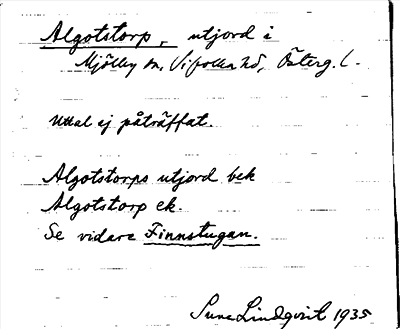 Algotstorp, utjord i
Mjölby sn, Vifolka hd, Österg. l.
Uttal ej påträffat.
Algotstorps utjord bek
Algotstorp ek.
Se vidare Finnstugan.
Sune Lindqvist 1935